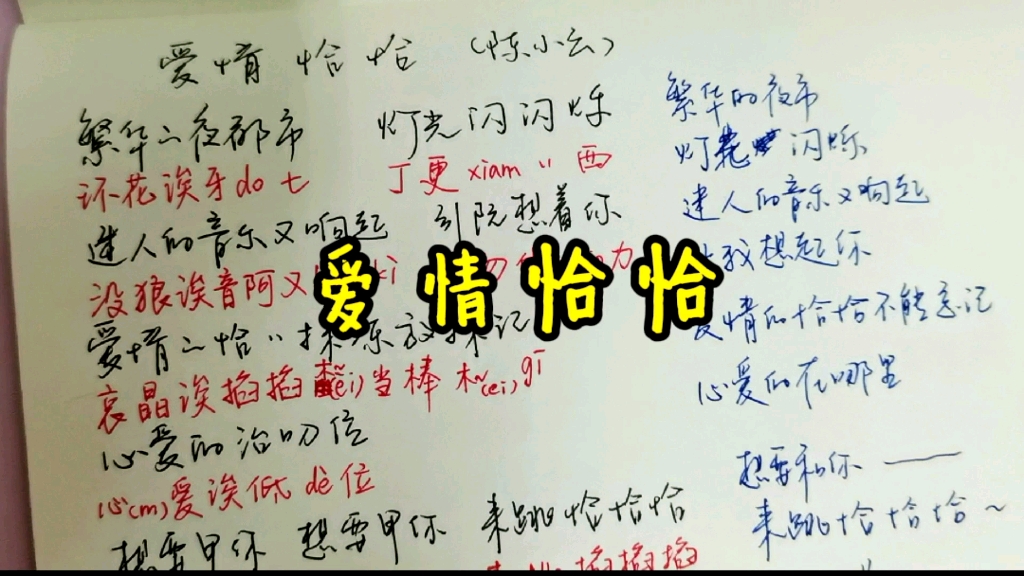 爱情恰恰（陈小云）
繁华的夜都市 灯光闪闪烁
环花诶牙do七 丁更xiam〃西
迷人的音乐又响起 引阮想着你
没狼诶音阿又
爱情的恰〃
哀晶诶掐掐 当棒 (ei)gī
心爱的治叨位
心(m)爱诶低dè位
想要甲你 想要甲你 来跳恰恰恰
掐掐掐
繁华的夜市
灯花闪烁
迷人的音乐又响起
我想起你
爱情的恰恰不能忘记
心爱的在哪里
想要和你——
来跳恰恰恰～
爱情恰恰